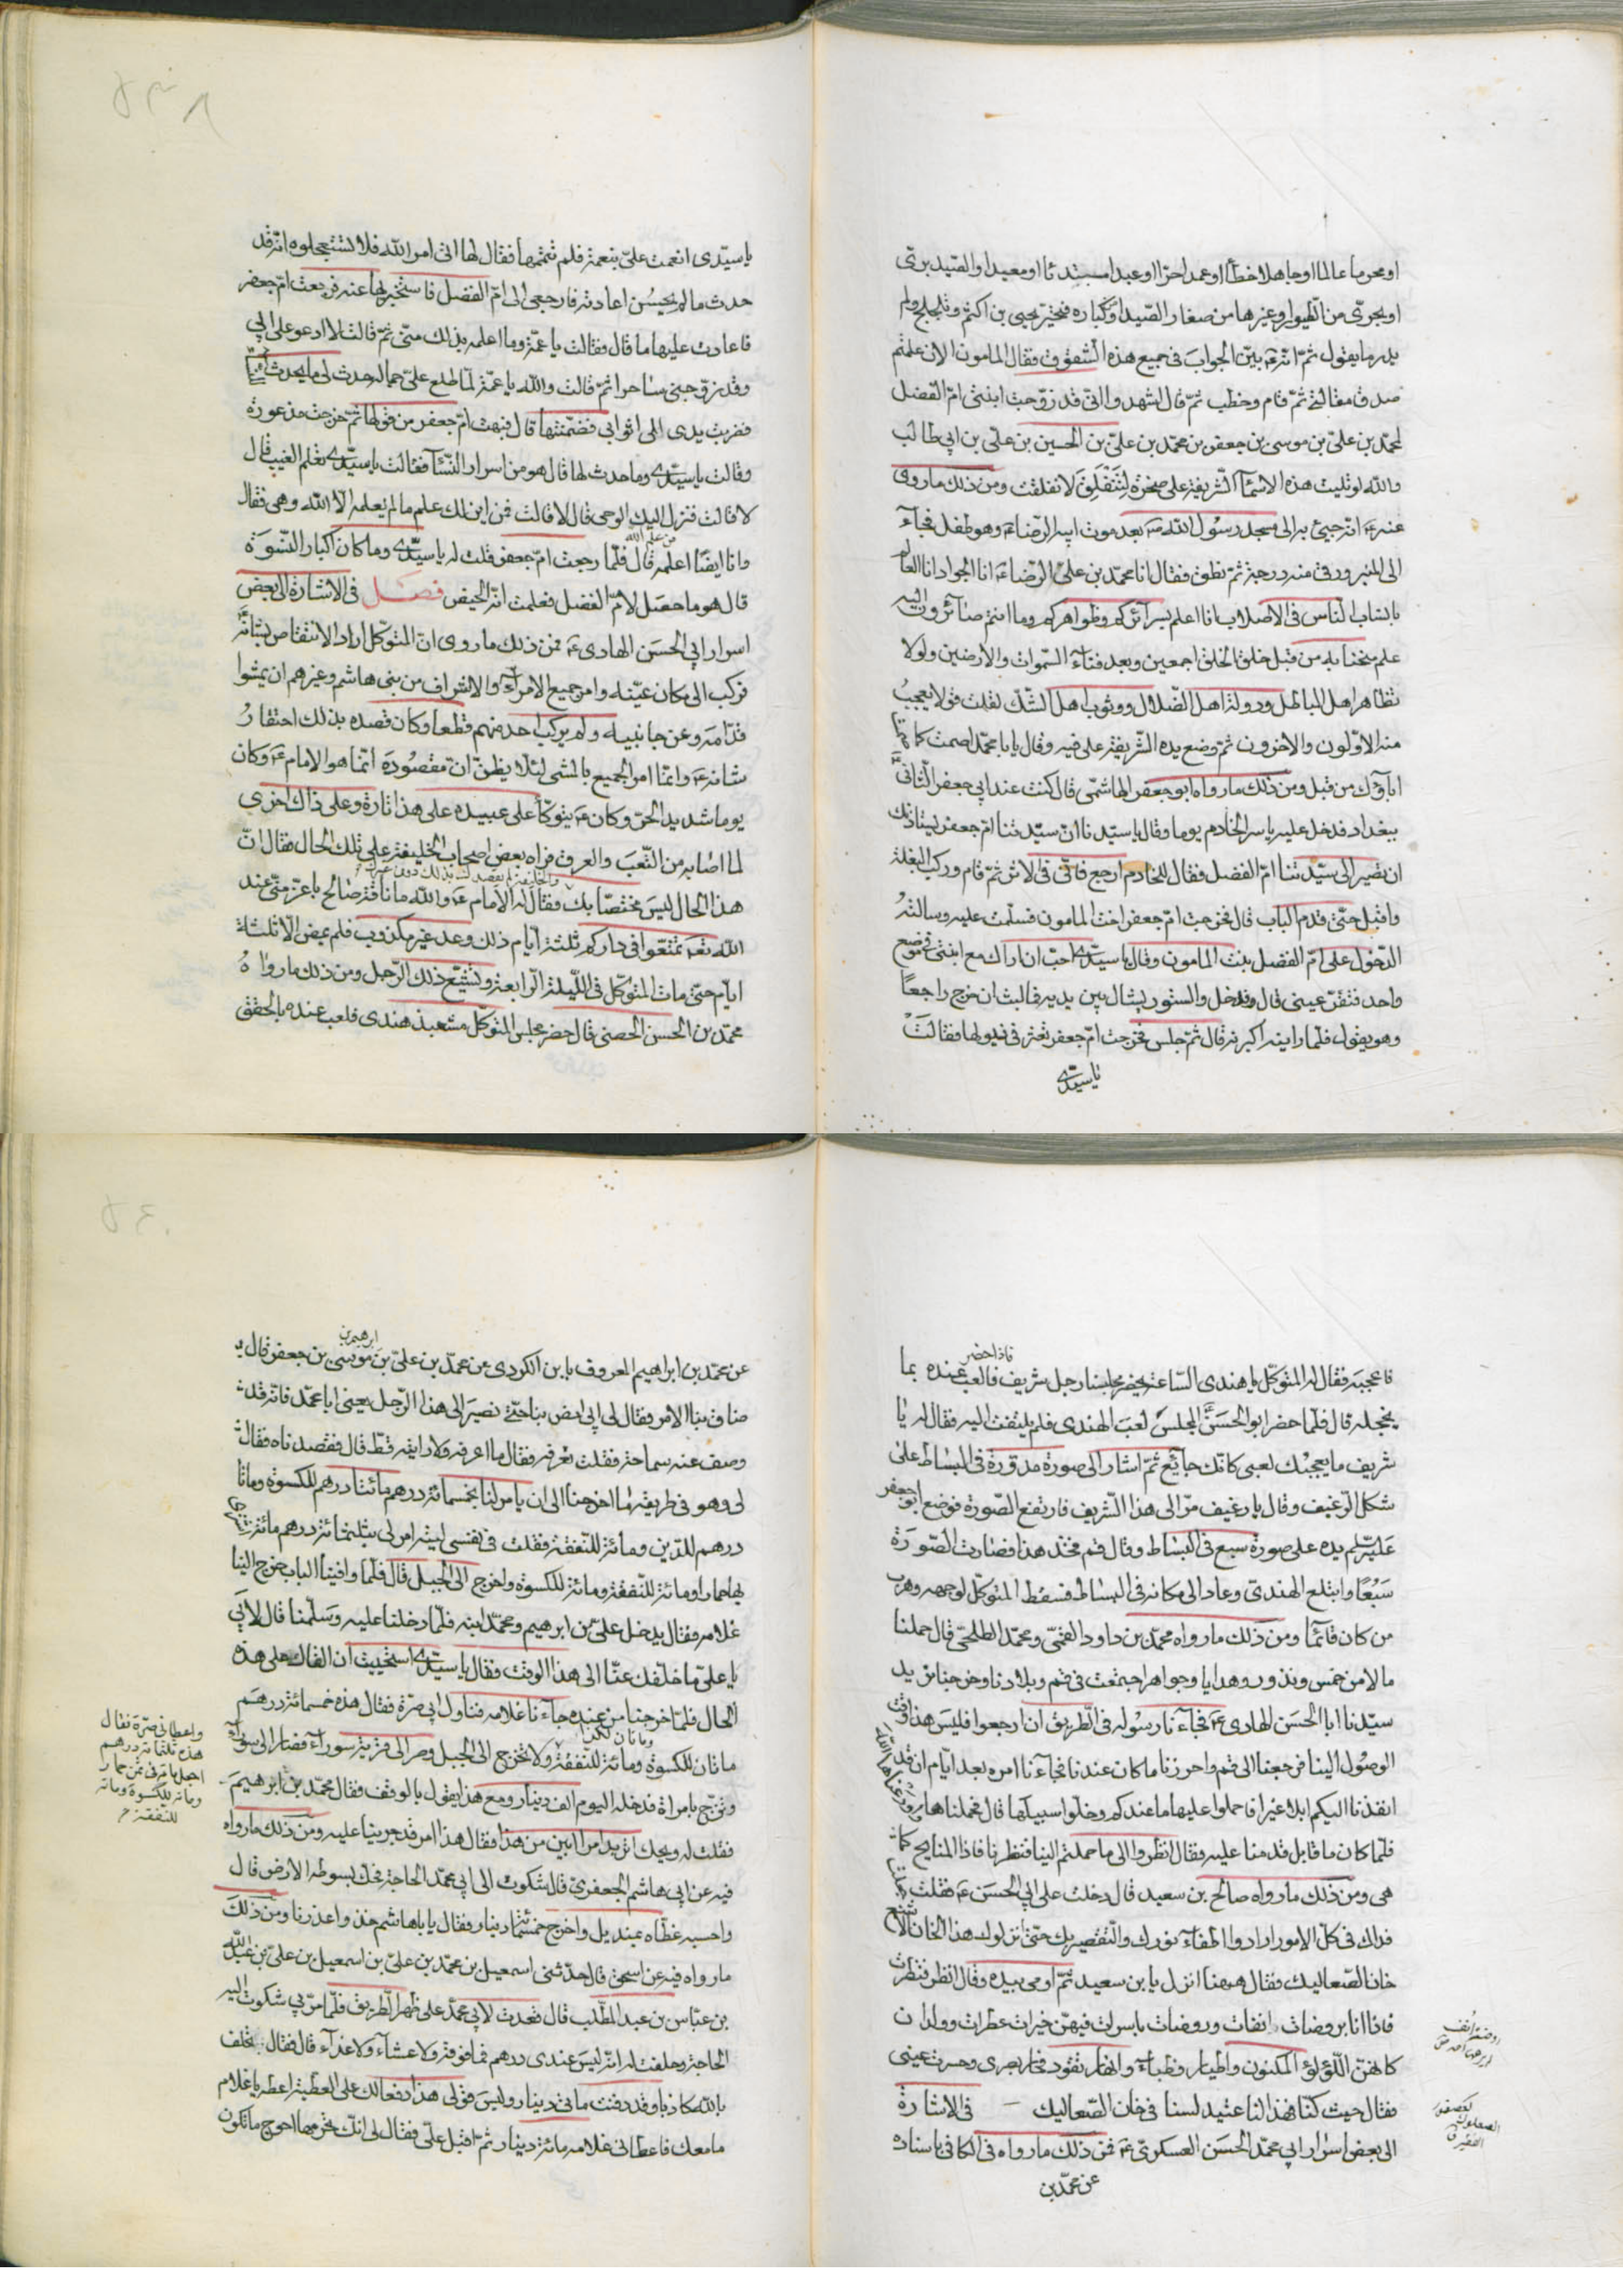 او محرما عالما او جاهلا خطأ او عمدا حرّا او عبدا مبتدئا او معيدا والصّيد برّى
او بحرىّ من الطّيور او غيرها من صغار الصّيد او كباره فتحيّر يحيى بن اكثم وتلجلج ولم
يدر ما يقول ثمّ انّه ع بيّن الجواب فى جميع هذه الشّقوق فقال المامون الان علمتم
صدق مقالتى ثمّ قام وخطب ثمّ قال اشهدوا انّى قد زوّجت ابنتى امّ الفضل
لمحمّد بن علىّ بن موسى بن جعفر بن محمّد بن علىّ بن الحسين بن علىّ بن ابى طالب
والله لو تليت هذه الاسمآء الشّريفة على صخرة لتنفلق لانفلقت ومن ذلك ما روى
عنه ع انّه جيئ به الى مسجد رسول الله ص بعد موت ابيه الرّضا ع وهو طفل فجآء
الى المنبر ورقى منه درجة ثمّ نطق فقال انا محمّد بن علىّ الرّضا ع انا الجواد انا العالم
بانساب النّاس فى الاصلاب انا اعلم بسرآئركم وظواهركم وما انتم صائرون اليه
علم منحنا به من قبل خلق الخلق اجمعين وبعد فنآء السّموات والارضين ولولا
تظاهر اهل الباطل ودولة اهل الضّلال ووثوب اهل الشّك لقلت قولا يعجب
منه الاوّلون والاخرون ثمّ وضع يده الشّريفة على فيه وقال يا محمّد اصمت كما صمت
اباؤك من قبل ومن ذلك ما رواه ابو جعفر الهاشمّى قال كنت عند ابى جعفر الثّانى ع
ببغداد فدخل عليه ياسر الخادم يوما وقال يا سيّدنا انّ سيّدتنا امّ جعفر تستاذنك
ان تصير الى سيّدتنا امّ الفضل فقال للخادم ارجع فانّى فى الاثر ثمّ قام وركب البغلة
واقبل حتّى قدم الباب قال فخرجت امّ جعفر اخت المامون فسلّمت عليه وسالته
الدّخول على امّ الفضل بنت المامون وقالت يا سيّدى احبّ ان اراك مع ابنتى فى موضع
واحد فتقرّ عينى قال فدخل والستور تشال بين يديه فما لبث ان خرج راجعاً
وهو يقول فلمّا راينه اكبرنه قال ثمّ جلس فخرجت امّ جعفر تعثر فى ذيولها فقالت
يا سيّدى
يا سيّدى انعمت علىّ بنعمة فلم تتمّمها فقال لها اتى امر الله فلا تستعجلوه انّه قد
حدث ما لم يحسن اعادته فارجعى الى امّ الفضل فاستخبريها عنه فرجعت امّ جعفر
فاعادت عليها ما قال فقالت يا عمّة وما اعلمه بذلك منّى ثمّ قالت لا ادعو على ابى
وقد زوّجنى ساحرا ثمّ قالت والله يا عمّة لمّا طلع علىّ جماله حدث لى ما يحدث
فضربت يدى الى اثوابى فضممتها قال فبهتت امّ جعفر من قولها ثمّ خرجت مذعورة
وقالت يا سيّدى وما حدث لها قال هو من اسرار النّسآء فقالت يا سيّدى تعلم الغيب قال
لا قالت فنزل اليك الوحى قال لا قالت فمن اين لك علم ما لم يعلمه الّا الله وهى فقال
من علم الله
وانا ايضًا اعلمه قال فلمّا رجعت امّ جعفر قلت له يا سيّدى وما كان اكبار النّسوة
قال هو ما حصل لامّ الفضل فعلمت انّه الحيض فصل فى الاشارة الى بعض
اسرار ابى الحسن الهادى ع فمن ذلك ما روى انّ المتوكّل اراد الانتقاص بشانه ع
فركب الى مكان عيّنه وامر جميع الامرآء والاشراف من بنى هاشم وغيرهم ان يمشوا
قدّامه وعن جانبيه ولم يركب احد منهم قطعا وكان قصده بذلك احتقار
شانه ع وانّما امر الجميع بالمشى لئلّا يظنّ انّ مقصوده انّما هو الامام ع وكان
يوما شديد الحرّ وكان ع يتوكّأ على عبيده على هذا تارة وعلى ذاك اخرى
لما اصابه من التّعب والعرق فراه بعض اصحاب الخليفة على تلك الحال فقال انّ
والخليفة لم يقصدك بذلك دون غيرك
هذا الحال ليس مختصّا بك فقال له الامام ع والله ما ناقة صالح باعزّ منّى عند
الله تع تمتّعوا فى داركم ثلثة ايّام ذلك وعد غير مكذوب فلم يمض الّا ثلثة
ايّام حتّى مات المتوكّل فى اللّيلة الرّابعة وتشيّع ذلك الرّجل ومن ذلك ما رواه
محمّد بن الحسن الحصنى قال حضر مجلس المتوكّل مشعبذ هندى فلعب عنده بالحقق
فاذا حضر
فاعجبه فقال له المتوكّل يا هندى السّاعة يحضر مجلسنا رجل شريف فالعب عنده بما
يخجله قال فلمّا حضر ابو الحسن ع المجلس لعب الهندى فلم يلتفت اليه فقال له يا
شريف ما يعجبك لعبى كانّك جآئع ثمّ اشار الى صورة مدوّرة فى البساط على
شكل الرّغيف وقال يا رغيف مرّ الى هذا الشّريف فارتفع الصّورة فوضع ابو جعفر
عليه السّلم يده على صورة سبع فى البساط وقال قم فخذ هذا فصارت الصّورة
سبعًا وابتلع الهندىّ وعاد الى مكانه فى البساط فسقط المتوكّل لوجهه وهرب
من كان قائمًا ومن ذلك ما رواه محمّد بن داود القمّى ومحمّد الطلحىّ قال حملنا
مالا من خمس ونذور وهدايا وجواهر اجتمعت فى قم وبلادنا وخرجنا نريد
سيّدنا ابا الحسن الهادى ع فجآءنا رسوله فى الطّريق ان ارجعوا فليس هذا وقت
الوصول الينا فرجعنا الى قم واحرزنا ما كان عندنا فجآءنا امره بعد ايّام ان قد
انفذنا اليكم ابلا غيرا فاحملوا عليها ما عندكم وخلّوا سبيلها قال فحملناها
فلمّا كان من قابل قدمنا عليه فقال انظروا الى ما حملتم الينا فنظرنا فاذا المنايح كما
هى ومن ذلك ما رواه صالح بن سعيد قال دخلت على ابى الحسن ع فقلت
فداك فى كلّ الامور ارادوا اطفآء نورك والتّقصير بك حتّى انزلوك هذا الخان الاشنع
خان الصّعاليك فقال ههنا انزل يا بن سعيد ثمّ اومى بيده وقال انظر فنظرت
فاذا انا بروضات انفات وروضات باسرات فيهنّ خيرات عطرات وولدان
كانهنّ اللّؤلؤ المكنون واطيار وظباء وانهار تفور فحار بصرى وحسرت عينى
فقال حيث كنّا فهذا لنا عتيد لسنا فى خان الصّعاليك فى الاشارة
الى بعض اسرار ابى محمّد الحسن العسكرىّ ع فمن ذلك ما رواه فى الكافى باسناده
عن محمّد بن
الصعلوك
الفقير
ابرهيم بن
عن محمّد بن ابراهيم المعروف بابن الكردى عن محمّد بن علىّ بن موسى بن جعفر قال
ضاق بنا الامر فقال لى ابى امض بنا حتّى نصير الى هذا الرّجل يعنى ابا محمّد فانّه قد
وصف عنه سماحة فقلت تعرفه فقال ما اعرفه ولا رايته قطّ قال فقصدناه فقال
لى وهو فى طريقه ما احوجنا الى ان يامر لنا بخمسمائة درهم مائتا درهم للكسوة ومائتا
درهم للدّين ومائة للنّفقة فقلت فى نفسى ليته امر لى بثلثمائة درهم مائة اشترى
بها حمارا ومائة للنّفقة ومائة للكسوة واخرج الى الجبل قال فلمّا وافينا الباب خرج الينا
غلامه فقال يدخل علىّ بن ابرهيم ومحمّد ابنه فلمّا دخلنا عليه وسلّمنا قال لابى
يا علىّ ما خلّفك عنّا الى هذا الوقت فقال يا سيّدى استحييت ان القاك على هذه
الحال فلمّا خرجنا من عنده جآءنا غلامه فناول ابى صرّة فقال هذه خمسمائة درهم
مائتان للكسوة ومائة للنّفقة ولا تخرج الى الجبل وصر الى قرية سورآء فصار الى سورآء
وتزوّج بامراة فدخله اليوم الف دينار ومع هذا يقول بالوقف فقال محمّد بن ابرهيم
فقلت له ويحك اتريد امرا ابين من هذا فقال هذا امر قد جرينا عليه ومن ذلك ما رواه
فيه عن ابى هاشم الجعفرىّ قال شكوت الى ابى محمّد الحاجة فحك بسوطه الارض قال
واحسبه غطّاه بمنديل واخرج خمسمائة دينار وفقال يا باهاشم خذ واعذرنا ومن ذلك
ما رواه فيه عن اسحق قال حدّثنى اسمعيل بن محمّد بن علىّ بن اسمعيل بن علىّ بن عبد الله
بن عبّاس بن عبد المطّلب قال قعدت لابى محمّد على ظهر الطّريق فلمّا مرّ بى شكوت اليه
الحاجة وحلفت له انّه ليس عندى درهم فما فوقه ولا عشآء ولا غدآء قال فقال تحلف
بالله كاذبا وقد دفنت مائتى دينار وليس قولى هذا دفعا لك على العطيّة اعطه يا غلام
ما معك فاعطانى غلامه مائة دينار ثمّ اقبل علىّ فقال لى انّك تحرمها احوج ما تكون
واعطانى صرّة فقال
هذه ثلثمائة درهم
اجعل مائة فى ثمن حمار
ومائة للكسوة ومائة
للنّفقة